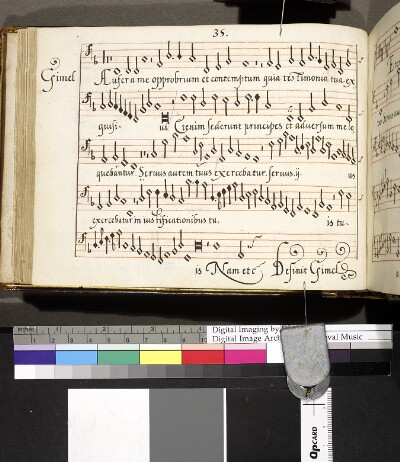 35.
Gimel
Aufer a me opprobrium et contemptum quia testimonia tua ex
quisi- ui Etenim sederunt principes et adversum me lo
quebantur Seruus autem tuus exercebatur. seruus.ij. us
exercebatur in iustificationibus tu. is tu-
is Nam etc Definit Gimel
inches 1 2
Digital Imaging by
Digital Image Arch val Music
QPCARD